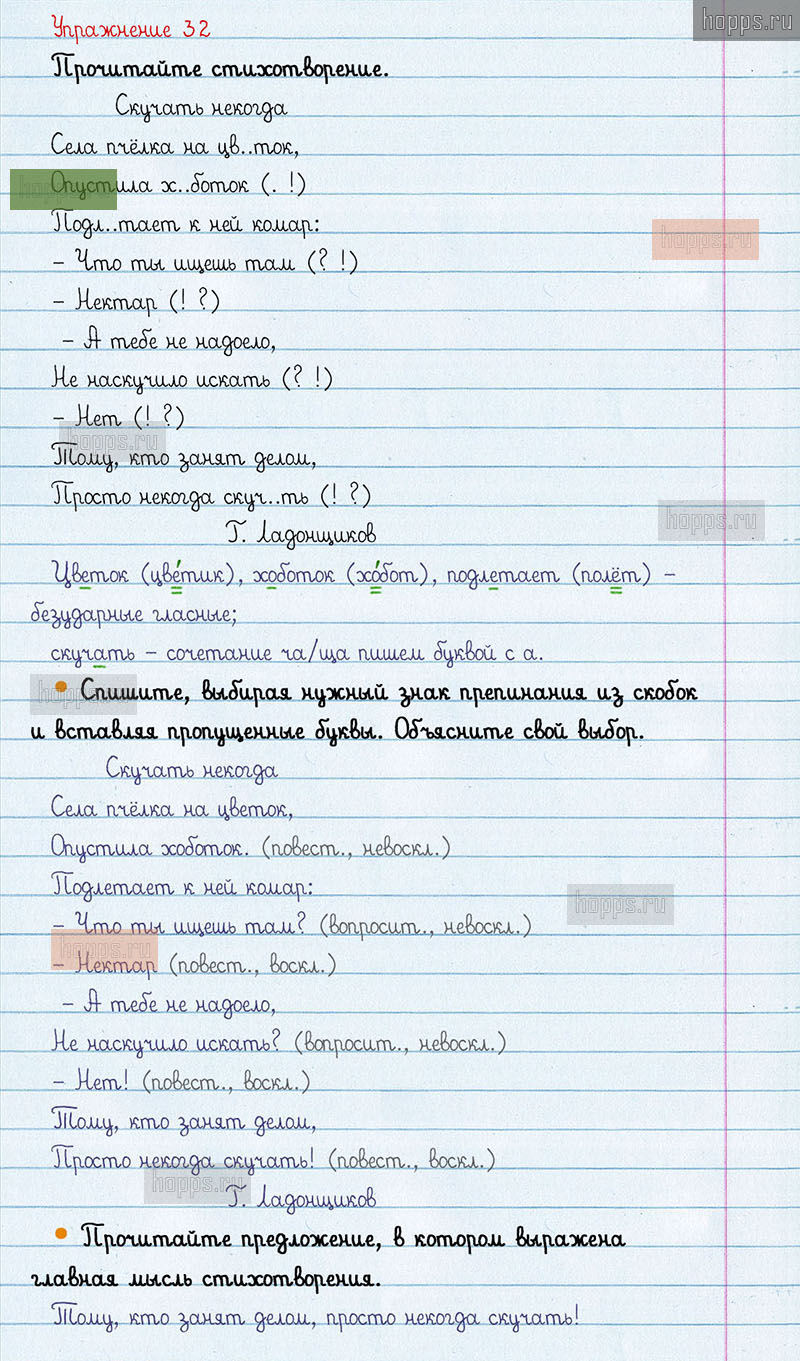 hopps.ru
Упражнение 32
Прочитайте стихотворение.
Скучать некогда
Села пчёлка на цв..ток,
Опустила х..боток (. !)
hopps.ru
Подл..тает к ней комар:
hopps.ru
– Что ты ищешь там (? !)
– Нектар (! ?)
– А тебе не надоело,
Не наскучило искать (? !)
– Нет (! ?)
hopps.ru
Тому, кто занят делом,
Просто некогда скуч..ть (! ?)
hopps.ru
Г. Ладонщиков
Цветок (цве́тик), хоботок (хо́бот), подлетает (полёт) –
безударные гласные;
скучать – сочетание ча/ща пишем буквой с а.
hopps.ru
• Спишите, выбирая нужный знак препинания из скобок
и вставляя пропущенные буквы. Объясните свой выбор.
Скучать некогда
Села пчёлка на цветок,
Опустила хоботок. (повест., невоскл.)
Подлетает к ней комар:
hopps.ru
– Что ты ищешь там? (вопросит., невоскл.)
hopps.ru
– Нектар (повест., воскл.)
– А тебе не надоело,
Не наскучило искать? (вопросит., невоскл.)
– Нет! (повест., воскл.)
Тому, кто занят делом,
Просто некогда скучать! (повест., воскл.)
hopps.ru
Г. Ладонщиков
• Прочитайте предложение, в котором выражена
главная мысль стихотворения.
Тому, кто занят делом, просто некогда скучать!